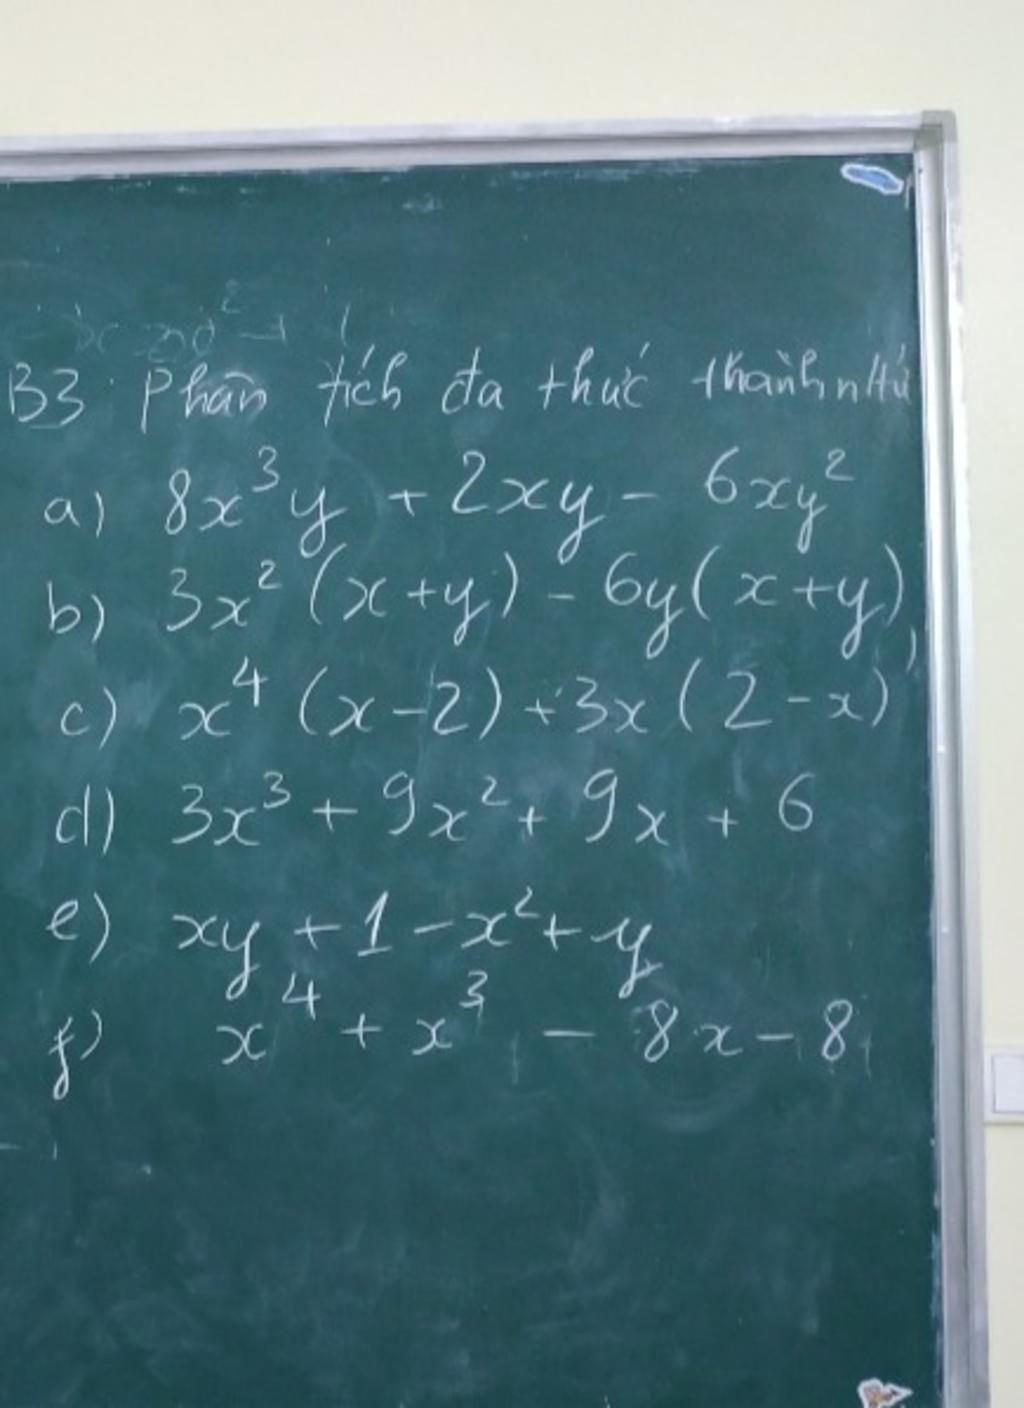 B3. Phân tích đa thức thành ntử
a) 8x³y + 2xy - 6xy²
b) 3x² (x+y) - 6y(x+y)
c) x⁴ (x-2) + 3x (2-x)
d) 3x³ + 9x² + 9x + 6
e) xy + 1 - x² + y
f) x⁴ + x³ - 8x - 8